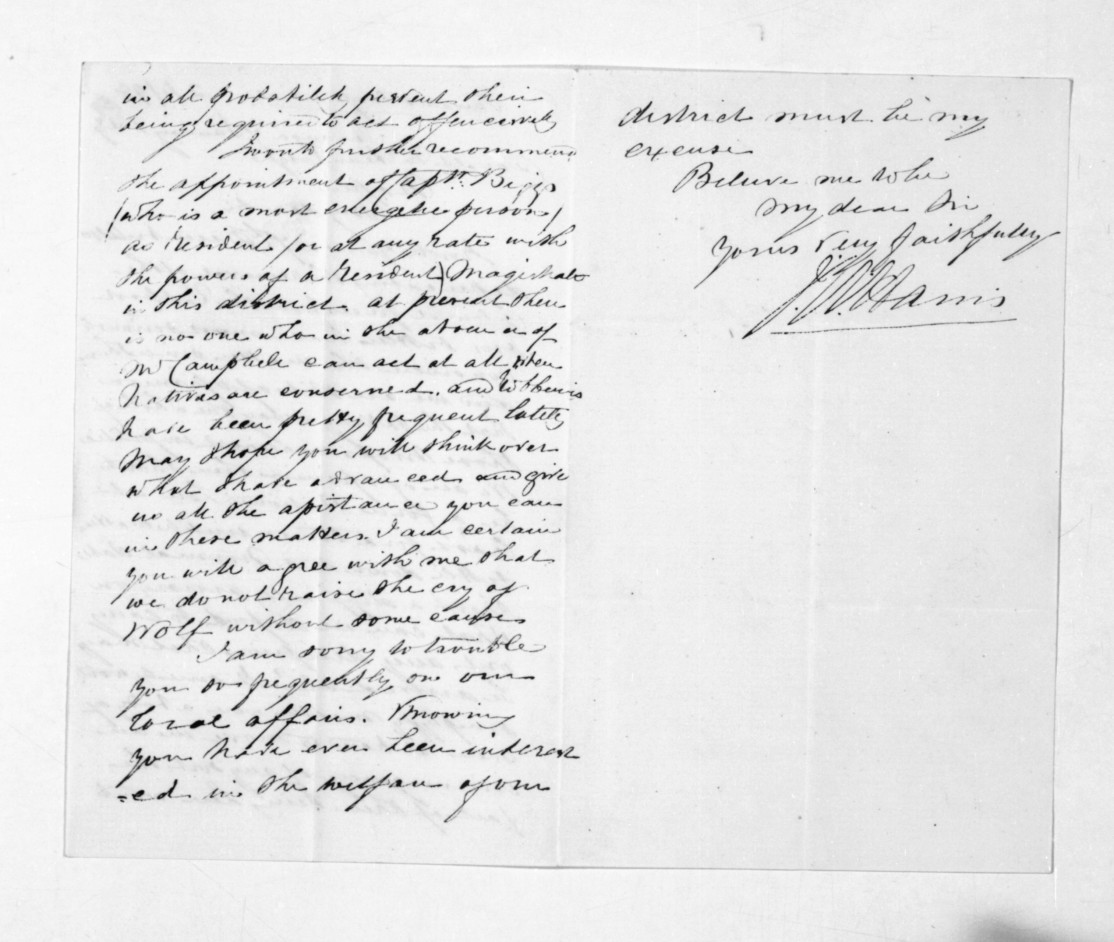 in all probability prevent their
being required to act offensively
I would further recommend
the appointment of Captn. Biggs
(who is a most energetic person)
as Resident (or at any rate with
the powers of a Resident) Magistrate
in this district at present there
is no one who in the absence of
Mr Campbell can act at all when
natives are concerned, and robberies
have been pretty frequent lately
May I hope you will think over
what I have advanced and give
us all the assistance you can
in these matters. I am certain
you will agree with me that
we do not raise the cry of
Wolf without some cause
I am sorry to trouble
you so frequently on our
local affairs. Knowing
you have ever been interest
=ed in the welfare of our
district must be my
excuse
Believe me to be
My dear Sir
Yours very faithfully
J W Harris